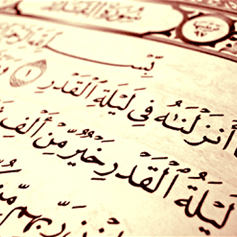 سورة القدر
بِسْـ
أَنزَلْنَٰهُ فِى لَيْلَةِ ٱلْقَدْرِ ١
لَيْلَةُ ٱلْقَدْرِ خَيْرٌ مِّنْ أَلْفِ
رَبِّهِم مِّن